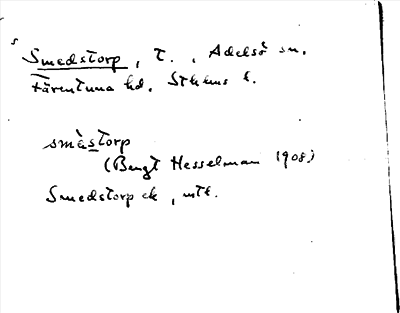 s
Smedstorp, t., Adelsö sn.
Färentuna hd. Sthlms l.
smè̀storp
(Bengt Hesselman 1908)
Smedstorp ek, mtl.